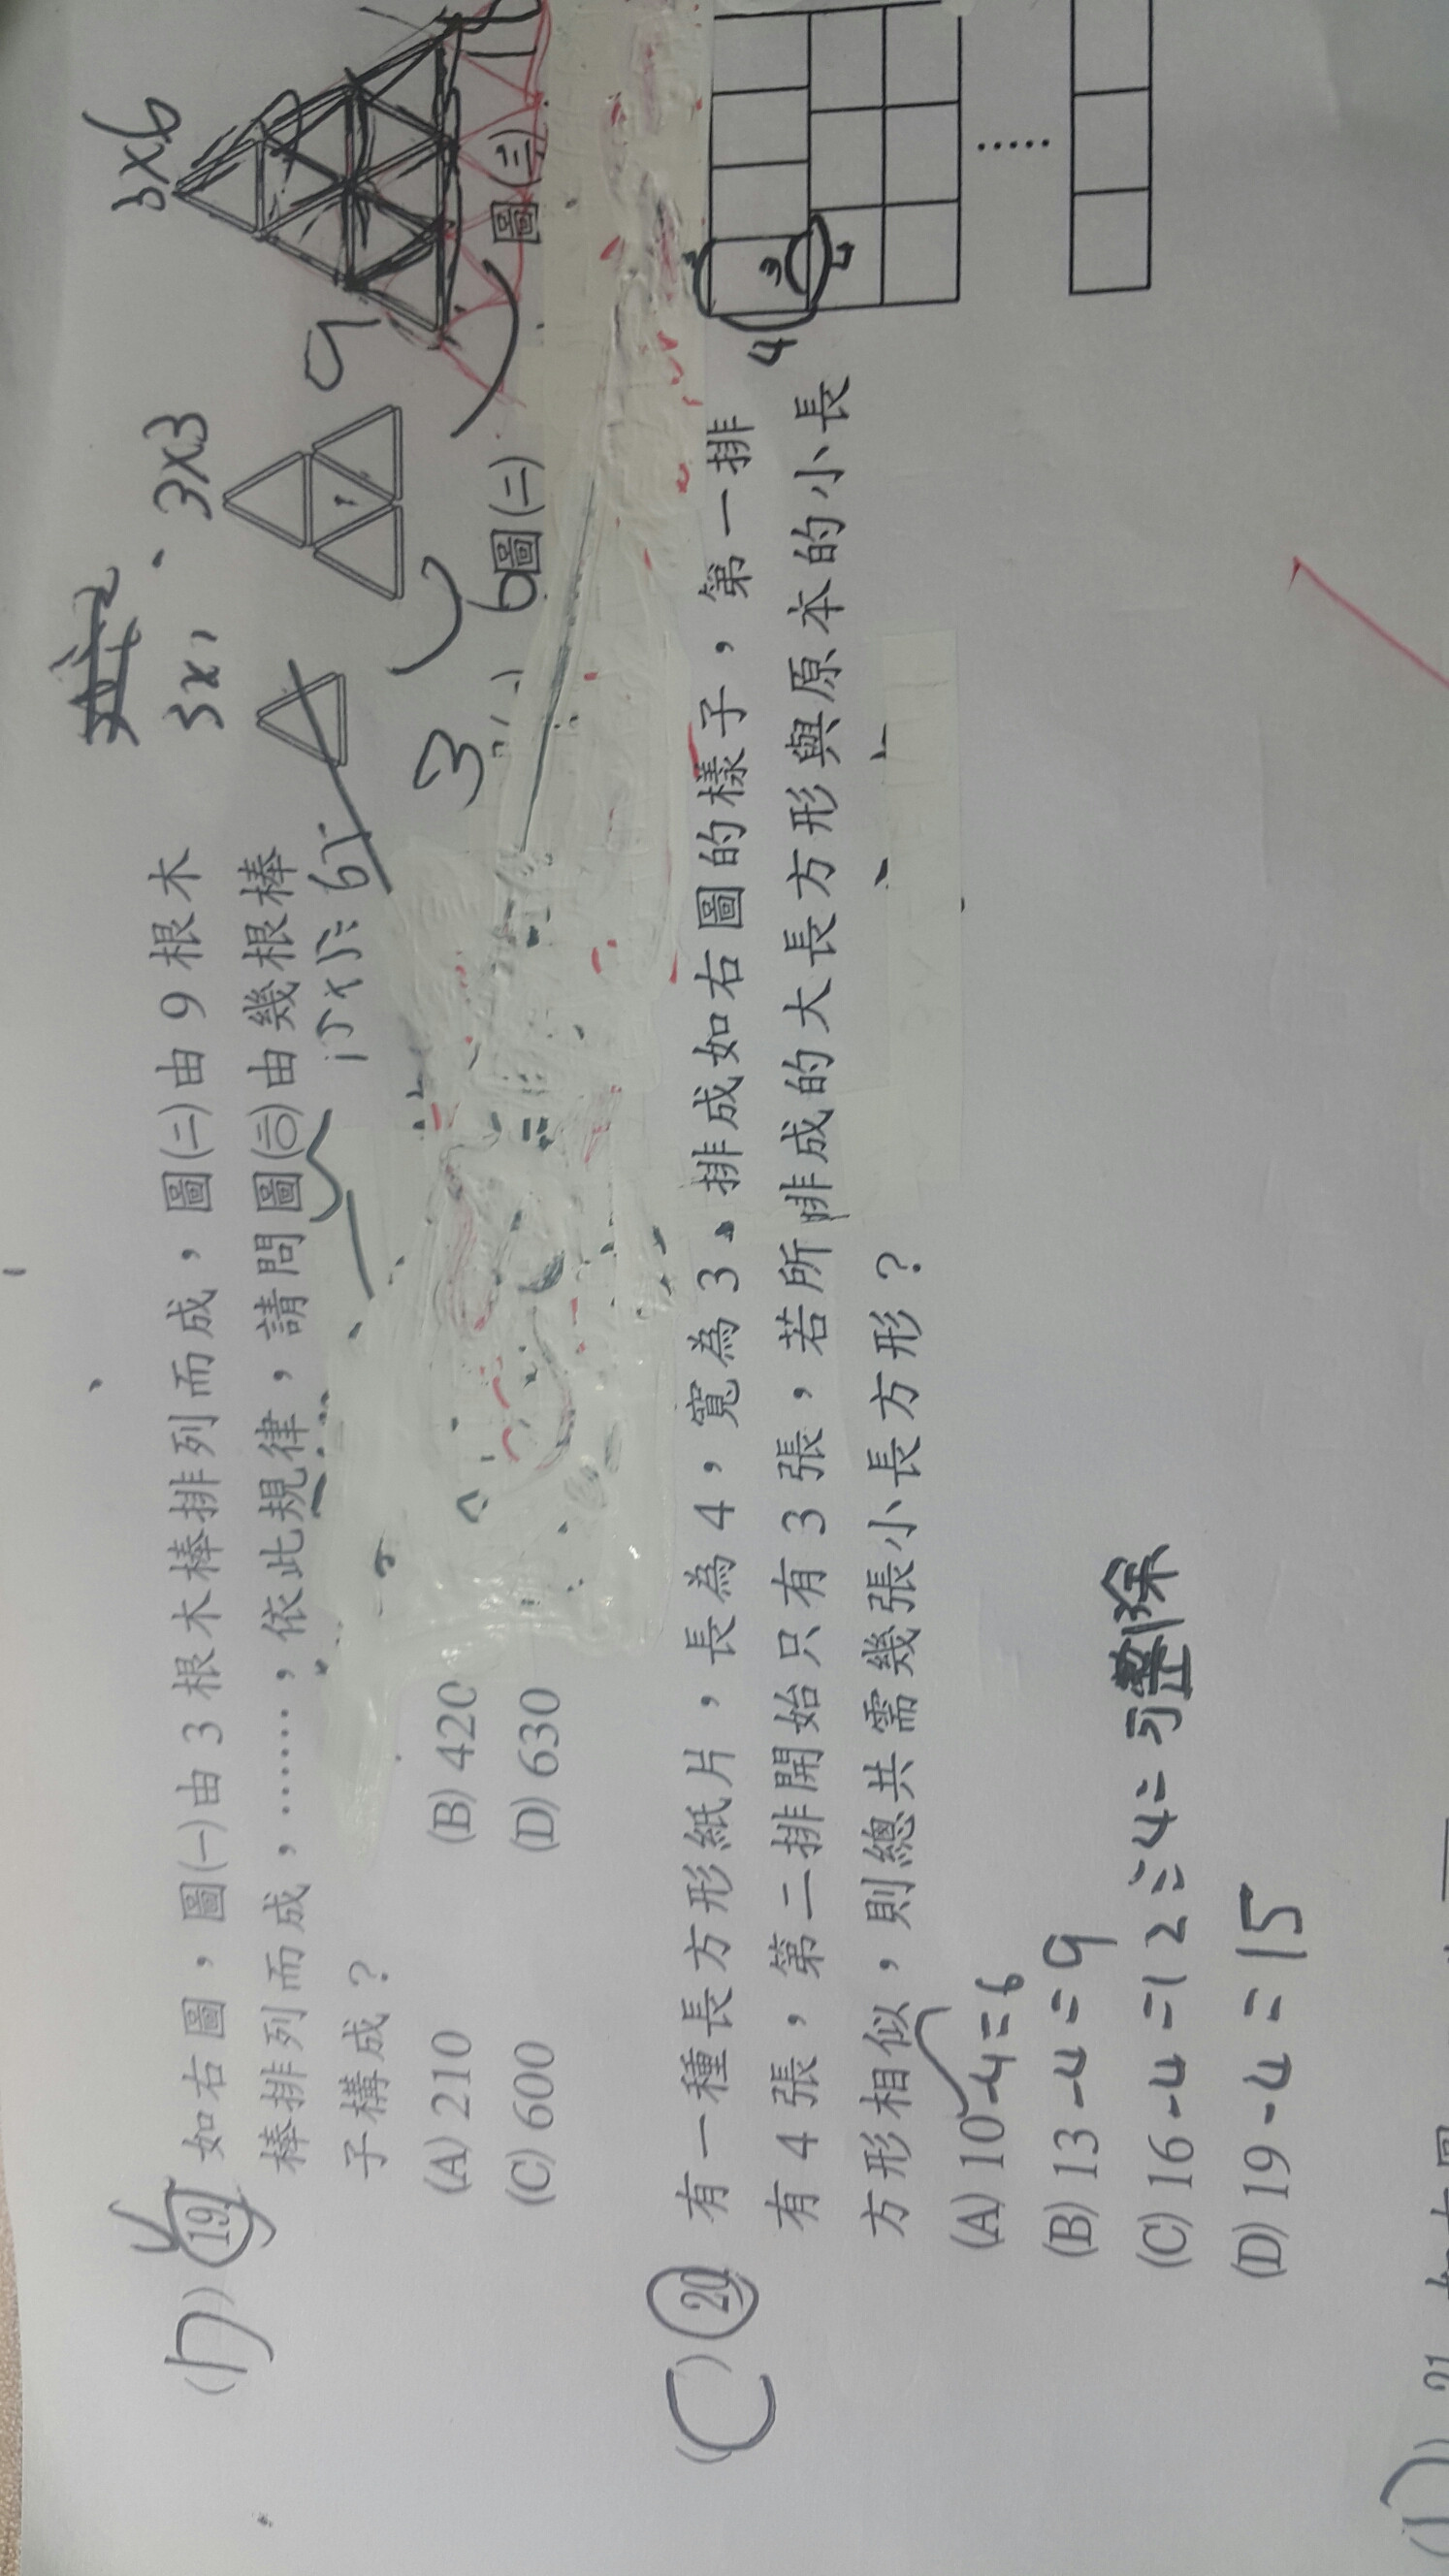 3×1
3×3
3×6
19 如右圖，圖(一)由 3 根木棒排列而成，圖(二)由 9 根木
棒排列而成，……，依此規律，請問圖(二〇)由幾根棒
子構成？
(A) 210
(B) 420
(C) 600
(D) 630
3
6
9
圖(二)
圖(三)
(C) 20 有一種長方形紙片，長為 4，寬為 3，排成如右圖的樣子，第一排
有 4 張，第二排開始只有 3 張，若所排成的大長方形與原本的小長
方形相似，則總共需幾張小長方形？
(A) 10 -4=6
(B) 13 -4=9
(C) 16 -4=12÷4= 可整除
(D) 19 -4=15
4
3
4
……
21